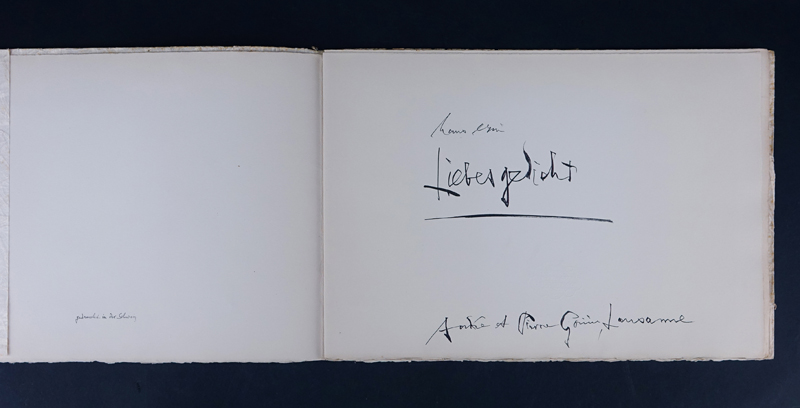 gedruckt in der Schweiz
hans erni
Liebesgedicht
André et Pierre Gonin, Lausanne